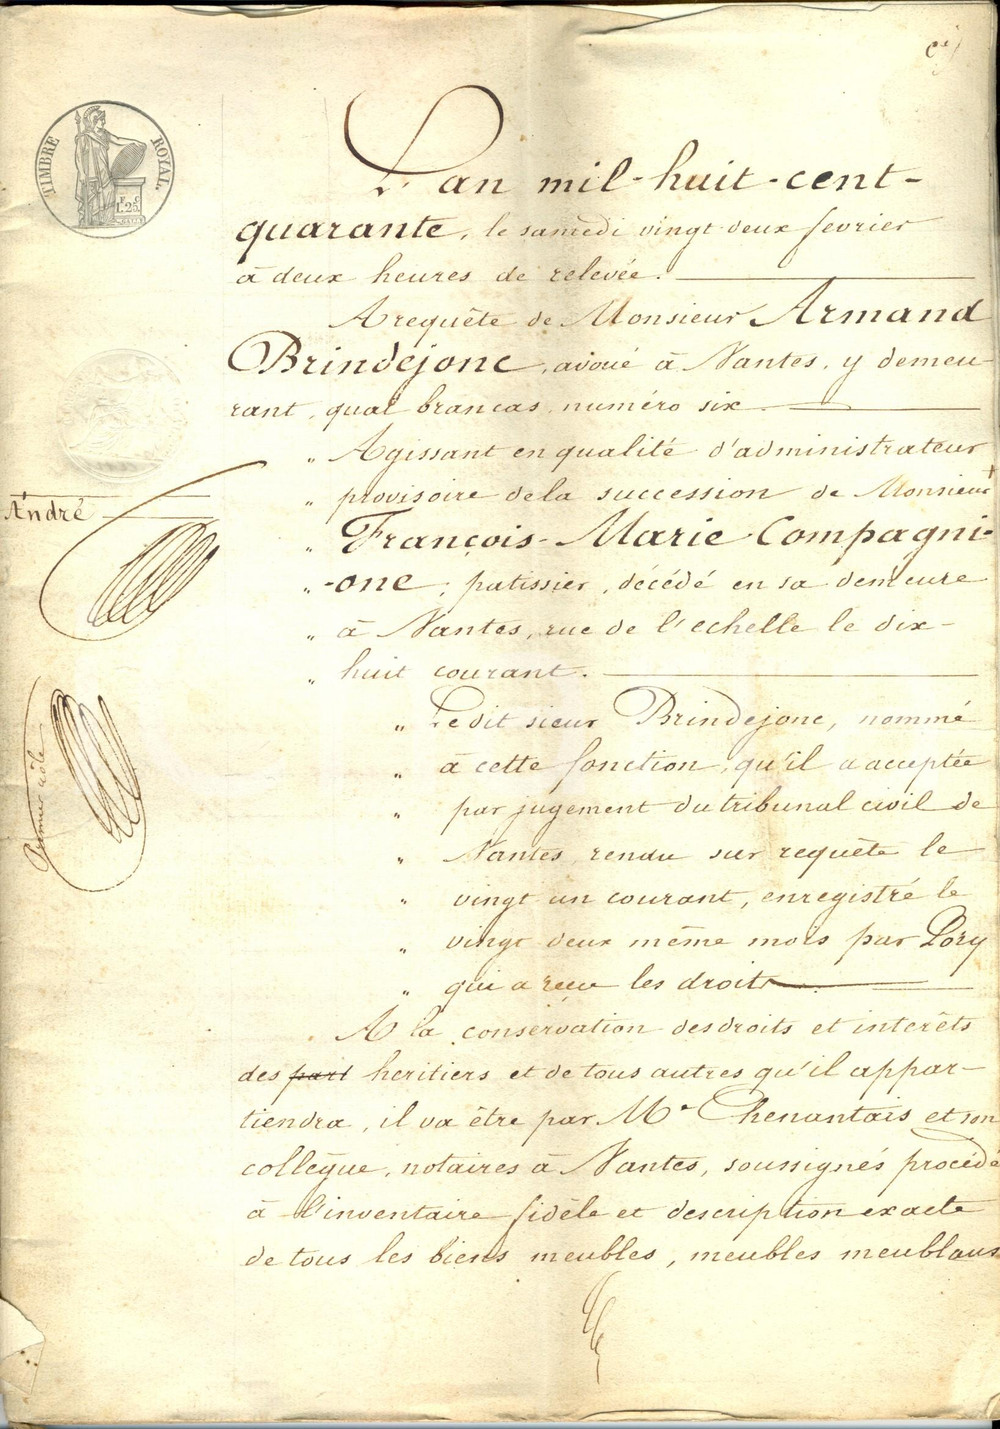 TIMBRE ROYAL.
F C
1.25
L'an mil-huit-cent-
quarante, le samedi vingt deux fevrier
à deux heures de relevée.
A requête de Monsieur Armand
Brindejonc, avoué à Nantes, y demeu
rant, quai brancas, numéro six
„ Agissant en qualité d'administrateur
„ provisoire de la succession de Monsieur
„ François-Marie Compagni-
„ -one, patissier, décédé en sa demeure
„ à Nantes, rue de l'echelle le dix-
„ huit courant.
„ Ledit sieur Brindejonc, nommé
„ à cette fonction, qu'il a acceptée
„ par jugement du tribunal civil de
„ Nantes, rendu sur requête le
„ vingt un courant, enregistré le
„ vingt deux même mois par Pory
„ qui a reçu les droits
A la conservation des droits et interêts
des part heritiers et de tous autres qu'il appar-
tiendra, il va être par Me Chenantais et son
collegue, notaires à Nantes, soussignés procédé
à l'inventaire fidèle et description exacte
de tous les biens meubles, meubles meublans
André